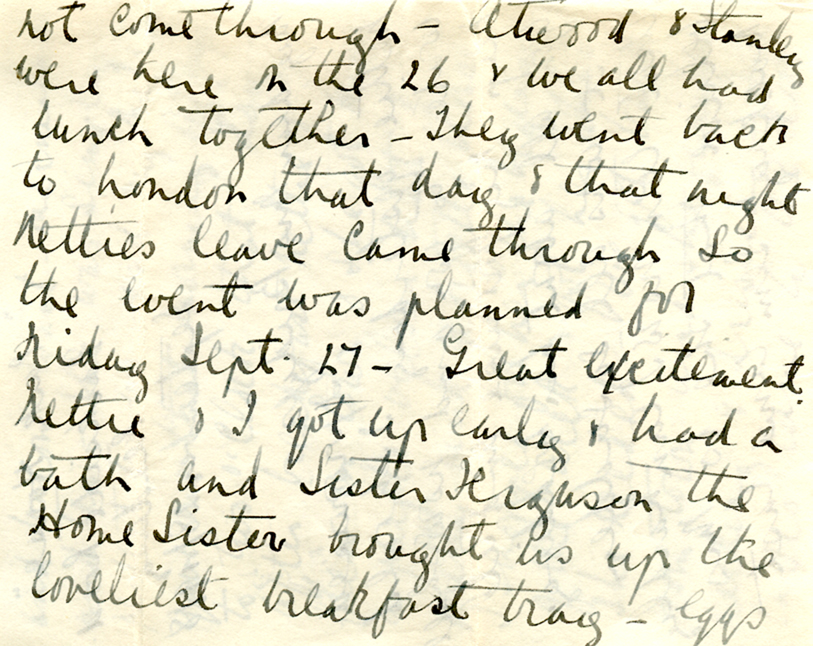 not come through – Atwood & Stanley
were here on the 26 & we all had
lunch together – They went back
to London that day & that night
Netties leave came through so
the event was planned for
Friday Sept. 27 – Great excitement.
Nettie & I got up early & had a
bath and Sister Ferguson the
Home Sister brought us up the
loveliest breakfast tray – eggs